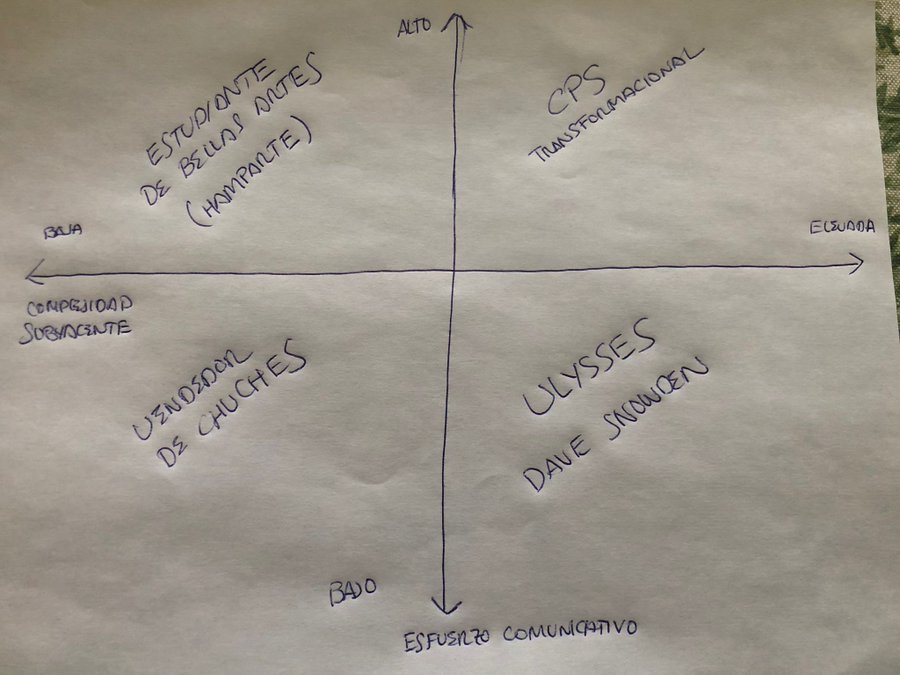 ALTO
ESTUDIANTE
DE BELLAS ARTES
(HAMPARTE)
CPS
TRANSFORMACIONAL
BAJA
ELEVADA
COMPLEJIDAD
SUBYACENTE
VENDEDOR
DE CHUCHES
ULYSSES
DAVE SNOWDEN
BAJO
ESFUERZO COMUNICATIVO